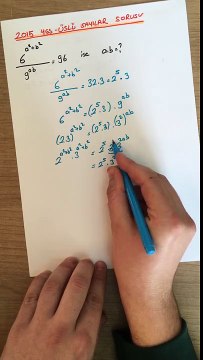 2015 YGS-ÜSLÜ SAYILAR SORUSU
6^(a²+b²) / 9^(ab) = 96 ise a+b=?
6^(a²+b²) / 9^(ab) = 32.3 = 2⁵.3
6^(a²+b²) = (2⁵.3).9^(ab)
(2.3)^(a²+b²) = (2⁵.3).(3²)^(ab)
2^(a²+b²).3^(a²+b²) = 2⁵.3.3^(2ab)
= 2⁵.3